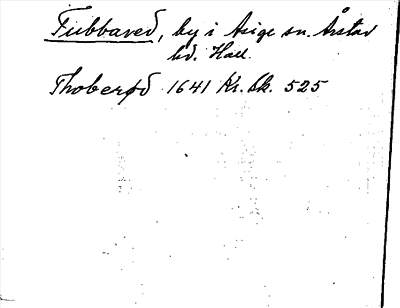 Fubbared, by i Asige sn. Årstad
hd. Hall.
Thoberød 1641 Kr. Sk. 525